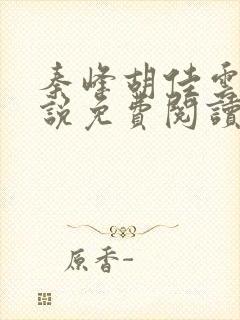 秦峰胡佳雲
說免費閱讀
原香-